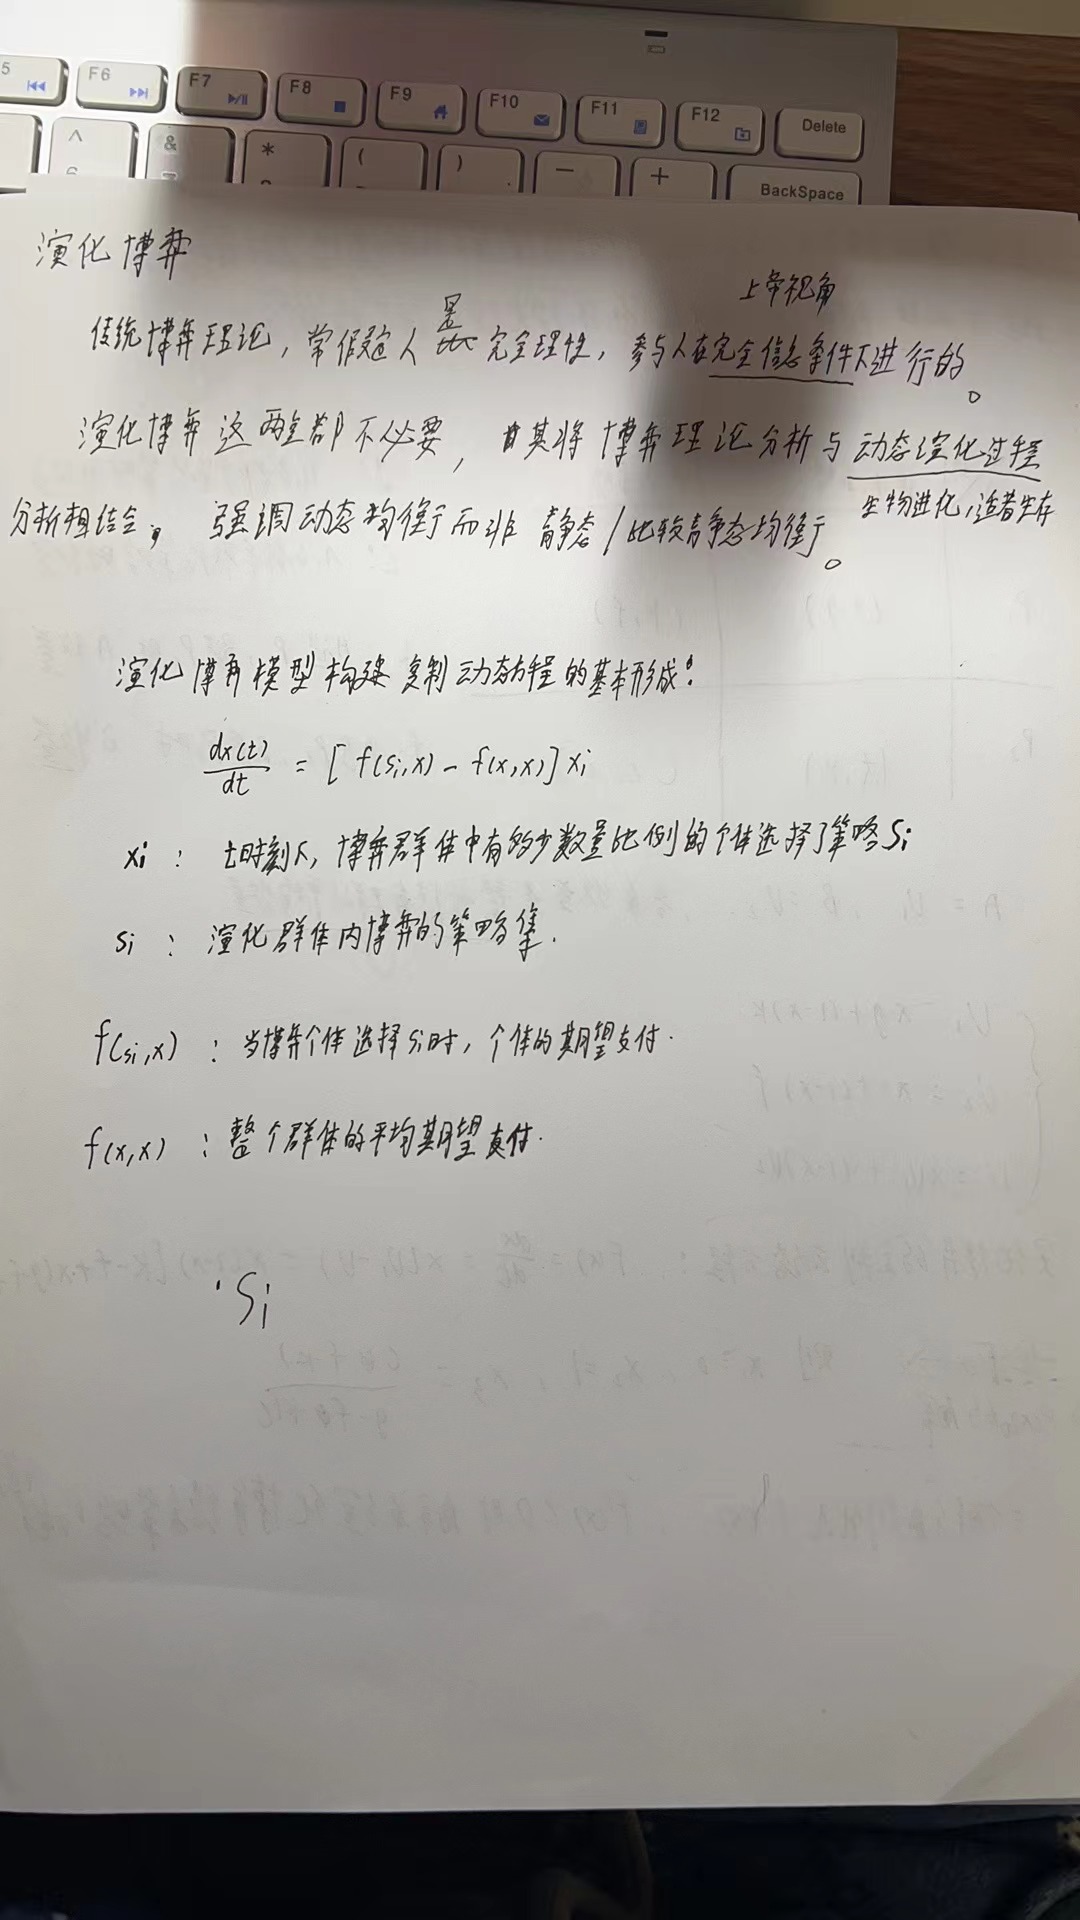 F6
F7
F8
F9
F10
F11
F12
Delete
^
&
*
(
)
—
+
BackSpace
演化博弈
上帝视角
是
传统博弈理论，常假定人 完全理性，参与人在完全信息条件下进行的。
演化博弈这两全都不必要，其将博弈理论分析与动态演化过程
生物进化，适者生存
分析相结合，强调动态均衡而非静态/比较静态均衡。
演化博弈模型构建复制动态方程的基本形成：
dx(t)/dt = [f(si,x) - f(x,x)]xi
xi：t时刻下，博弈群体中有多少数量比例的个体选择了策略Si
si：演化群体内博弈的策略集.
f(si,x)：当博弈个体选择si时，个体的期望支付.
f(x,x)：整个群体的平均期望支付.
·Si